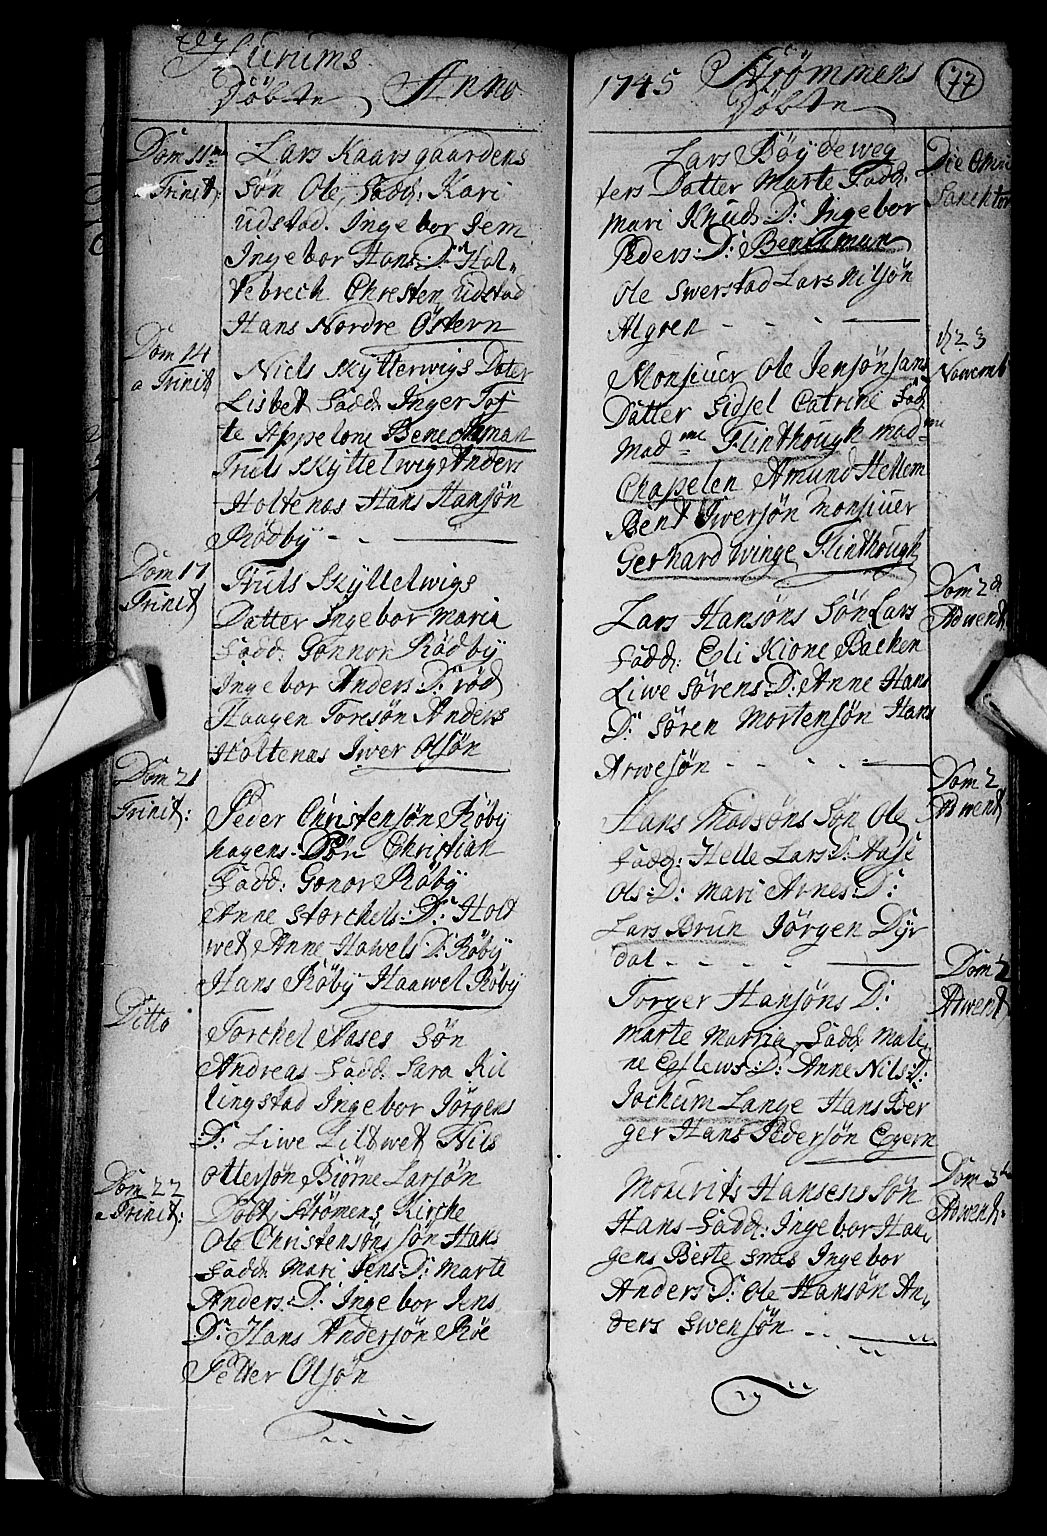 Hurums
Döbte Anno
Dom 11
Trinit:
Lars Kaarsgaardens
Søn Ole, Fadd: Kari
Udstad. Ingebor Jem
Ingebor Hans: D: Hol
tebrech Christen Udstad
Hans Nordre Östern
Dom 14
a Trinit
Niels Skytterwigs Dater
Lisbet Fadd: Inger Tof
te Appelone Benchman
Truls Skyttelwig Anders
Holtenæs Hans Hansøn
Rödby - -
Dom 17
a Trinit
Truls Skyttelwigs
Datter Ingebor Maria
Fadd: Gonnor Rödby
Ingebor Anders D: röd
Haagen Toresön Anders
Holtenæs Iwer Olsøn
Dom 21
Trinit:
Peder Christensøn Röby
hagens Søn Christian
Fadd: Gonor Röby
Anne Storchels: D: Holt
wet Anne Hawels: D: Röby
Hans Röby Haawel Röby
Ditto
Torchel Aases Søn
Andreas Fadd: Sara Kil
lingstad Ingebor Jörgens
D: Liwe Liltwet Nils
Ottersøn Biörne Larsøn
Dom 22
a Trinit:
Döbt, Strömens Kirche
Ole Christensøns søn Hans
Fadd: Mari Jens D: Marte
Anders: D: Ingebor Jens
D: Hans Andersøn Röe
Petter Olsøn
1745 Strømmens
Döbte
77
Lars Böydeweg
fers Datter Marte Fadd:
Mari Knuds D: Ingebor
Peders: D: Benchman
Ole Swerstad Lars Nilsøn
Algren - - -
Die Omni
Sanctor
Monsiuer Ole Jensøn
Datter Sidsel Catrine Fad
Mad me Flinthough mad me
Chapelen Amund Hellem
Bent Iwersön Monsiuer
Gerhard Winge Flinthough
23
Nowemb
Lars Hansøns Søn Lars
Fadd: Eli Kione Bachen
Liwe Sörens D: Anne Hans
D: Sören Mortensøn Hans
Arwesøn - - - -
Dom 2
Adwent
Hans Madsøns Søn Ole
Fadd: Helle Lars D: Aase
Ols: D: Mari Arnes: D:
Lars Brun Jörgen Dyr
dal - - - -
Dom 2
Adwent
Torger Hansøns D:
Marte Marria, Fadd: Male
ne D: Anne Nils: D:
Jochum Lange Hans Ber
ger Hans Pedersøn Egern
Dom 2
Adwent
Mouerits Hansens Søn
Hans Fadd: Ingebor Hau
gens Berte Smes Ingebor
Anders D: Ole Hansøn An
ders Swensøn
Dom 3
Adwent: